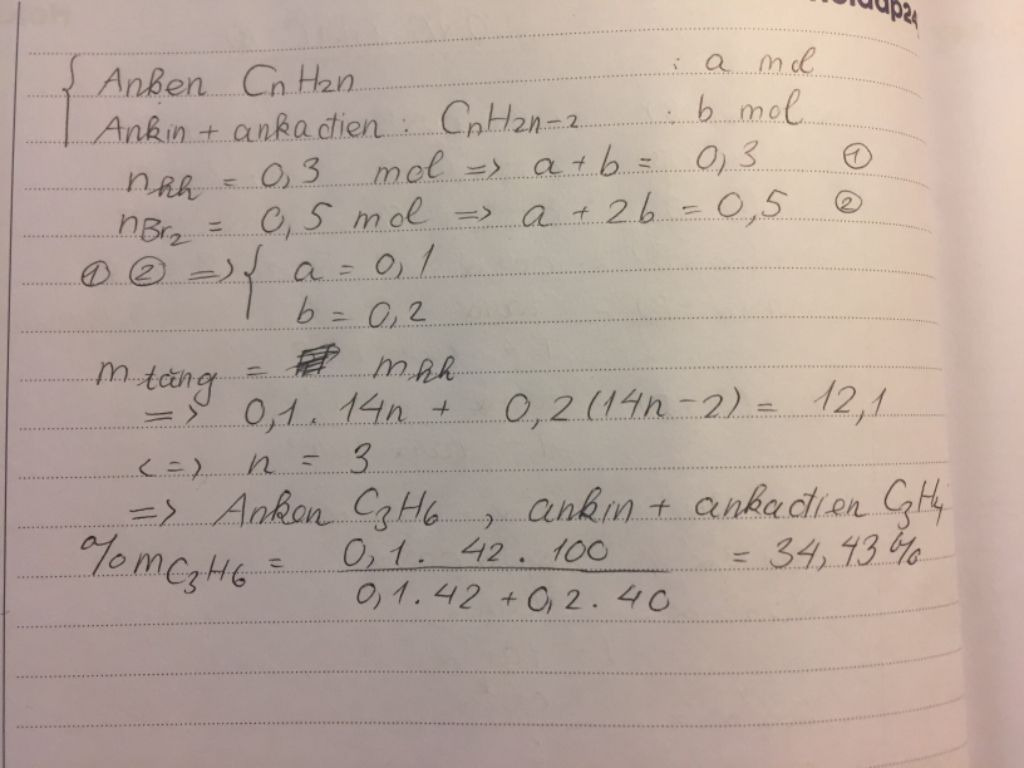 Anken CnH2n : a mol
Ankin + ankađien : CnH2n-2 : b mol
nhh = 0,3 mol => a + b = 0,3 ①
nBr2 = 0,5 mol => a + 2b = 0,5 ②
① ② => { a = 0,1
b = 0,2
m tăng = mhh
=> 0,1 . 14n + 0,2 (14n - 2) = 12,1
<=> n = 3
=> Anken C3H6 , ankin + ankađien C3H4
%mC3H6 = 0,1 . 42 . 100 / 0,1 . 42 + 0,2 . 40 = 34,43 %